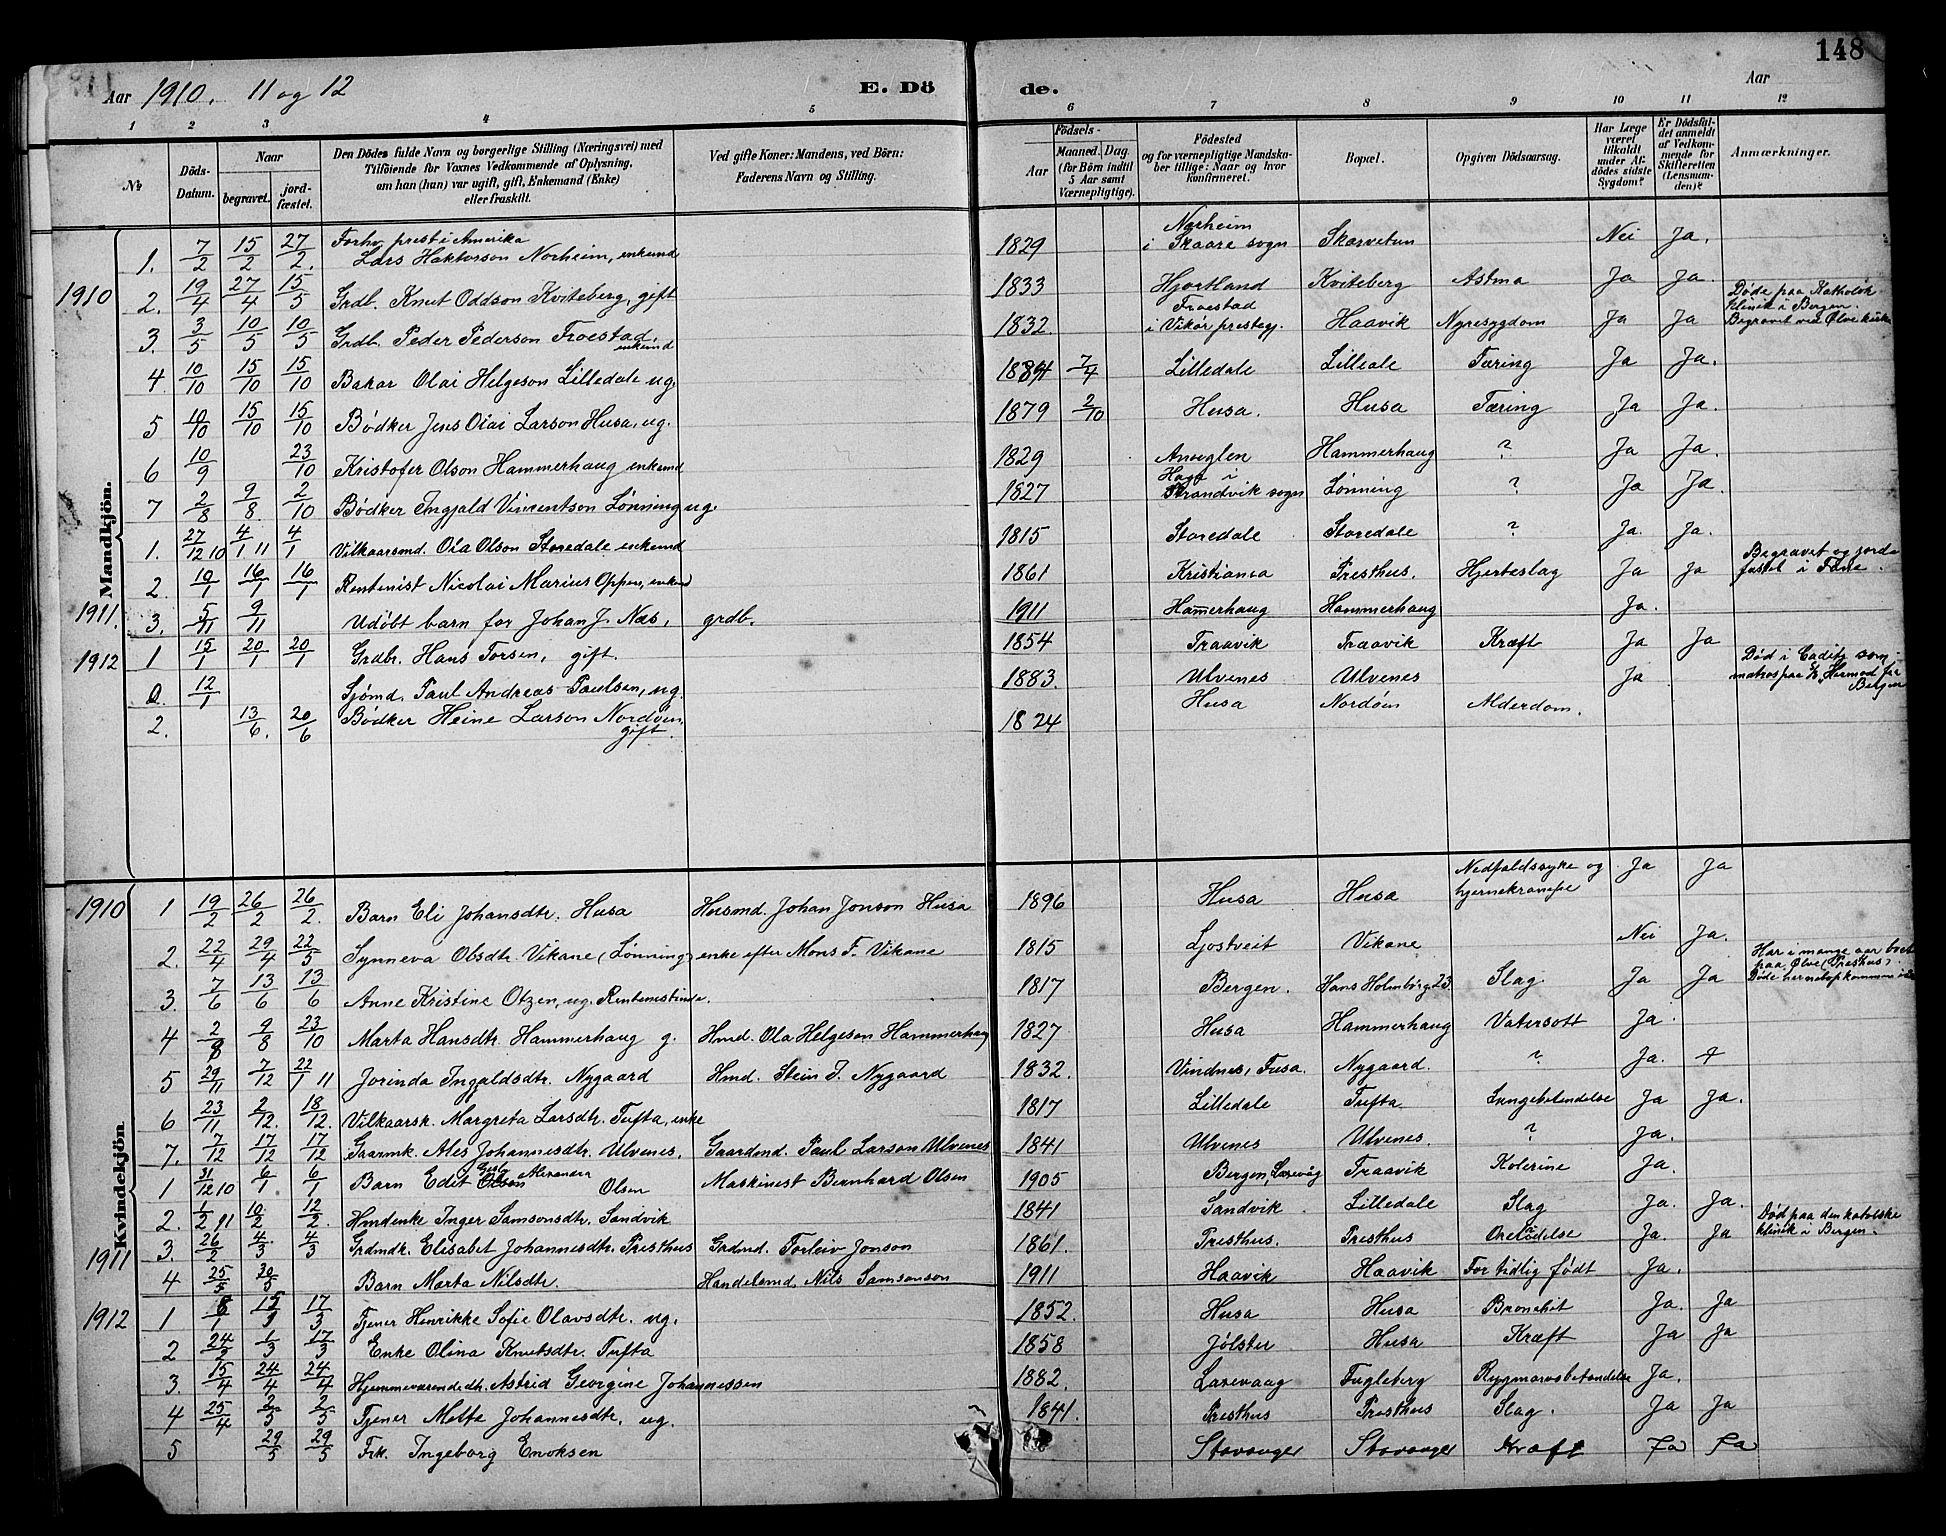 148
Aar 1910. 11 og 12 E. Dö de. Aar
1 2 3 4 5 6 7 8 9 10 11 12
№ Döds-Datum. Naar begravet. jord-fæstet. Den Dödes fulde Navn og borgerlige Stilling (Næringsvei) med Tilföiende for Voxnes Vedkommende af Oplysning, om han (hun) var ugift, gift, Enkemand (Enke) eller fraskilt. Ved gifte Koner: Mandens, ved Börn: Faderens Navn og Stilling. Födsels- Aar Maaned. Dag. (for Börn indtil 5 Aar samt Værnepligtige). Födested og for værnepligtige Mandska-ber tillige: Naar og hvor konfirmeret. Bopæl. Opgiven Dödsaarsag. Har Læge været tilkaldt under Af-dödes sidste Sygdom? Er Dödsfal-det anmeldt af Vedkom-mende for Skifteretten (Lensman-den)? Anmærkninger.
Mandkjön.
1910
1. 7/2 15/2 27/2. Forhv. prest i Amerika Lars Haktorson Norheim, enkemd 1829 Norheim i Skaare sogn Skarvetun Nei Ja.
2. 19/4 27/4 15/5 Grdb. Knut Oddson Kviteberg, gift 1833 Hjortland Kviteberg Astma Ja Ja.
3. 3/5 10/5 10/5 Grdb. Peder Pederson Froestad, enkemd 1832. Froestad i Vikör prestegj. Haavik Nyresygdom Ja Ja Døde paa Katholsk klinik i Bergen. Begravet ved Ølve kirke
4. 10/10 15/10 15/10 Bakar Olai Helgeson Lilledale ug. 1884 7/4 Lilledale Lilleale Tæring Ja Ja.
5 10/10 15/10 15/10 Bødker Jens Olai Larson Husa, ug. 1879 2/10 Husa. Husa Tæring Ja Ja.
6 10/9 23/10 Kristofer Olson Hammerhaug enkemd 1829 Hammerhaug ? Ja Ja.
7 2/8 9/8. 2/10 Bødker Ingjald Vincentson Lønning ug. 1827 Haga i Strandvik sogn Lønning ? Ja Ja.
1. 27/12 10 4/1 11 4/1 Vilkaarsmd. Ola Olson Storedale enkemd 1815 Storedale Storedale ? Ja. Ja.
1911.
2 10/1 16/1 16/1 Rentenist Nicolai Marius Oppen, enkemd 1861 Kristiania Presthus. Hjerteslag Ja Ja Begravet og jordfæstet i Fane.
3. 5/11 9/11 Udøbt barn for Johan J. Næs, grdb. 1911 Hamerhaug Hammerhaug Ja.
1912
1 15/1 20/1 20/1 Grdbr. Hans Torsen, gift. 1854 Traavik Traavik Kræft Ja Ja
0. 12/1 Sjømd. Paul Andreas Paulsen, ug. 1883. Ulvenes Ulvenes Ja Død i Cadits som matros paa Hermod fra Bergen
2. 13/6. 20/6 Bødker Heine Larson Nordøen, gift. 1824 Husa Nordøen Alderdom.
Kvindekjön.
1910
1 19/2 26/2 26/2. Barn Eli Johansdtr. Husa Husmd. Johan Jonson Husa 1896 Husa Husa Nedfaldssyke og hjernekrampe Ja Ja
2. 22/4 29/4 22/5 Synneva Olsdtr. Vikane (Lønning) enke efter Mons F. Vikane 1815 Ljostveit Vikane Nei Ja.
3 7/6 13/6 13/6 Anne Kristine Otzen, ug. Rentenistinde. 1817 Bergen. Hans Holmbörg. 23 Slag. Ja Ja Har i mange aar boet paa Ølve (Presthus). Døde
4 2/8 9/8 23/10 Marta Hansdtr. Hammerhaug g. Hmd. Ola Helgeson Hammerhaug 1827 Husa Hammerhaug Vatersott Ja.
5 29/11 7/12 22/1 11 Jorinda Ingaldsdtr. Nygaard Hmd. Stein J. Nygaard 1832. Vindnes, Fusa. Nygaard. ? Ja.
6 23/11 2/12. 18/12. Vilkaarsk. Margreta Larsdtr. Tufta, enke 1817 Lilledale Tufta Lungebetendelse Ja Ja.
7. 7/12 17/12 17/12 Gaarmk. Ales Johannesdtr. Ulvenes. Gaardmd. Paul Larson Ulvenes 1841 Ulvenes Ulvenes. ? Ja.
1 31/12 10 6/1 6/1 Barn Edit Alexandra Olsen Maskinist Bernhard Olsen 1905 Bergen, Laxevåg Traavik Kolerine Ja.
2. 1/2 11 10/2 12/2. Hmdenke Inger Samsonsdtr. Sandvik 1841 Sandvik. Lilledale Slag Ja. Ja.
1911
3. 26/2 4/3 4/3 Grdmdk. Elisabet Johannesdtr. Presthus Grdmd. Torleiv Jonson 1861. Presthus. Presthus Ja. Ja Død paa den katolske klinik i Bergen.
4 25/5 30/5 Barn Marta Nilsdtr. Handelsmd Nils Samsonson 1911 Haavik Haavik For tidlig født Ja.
1912
1 8/1 15/3 17/3 Tjener Henrikke Sofie Olavsdtr. ug. 1852. Husa Husa Bronchit Ja. Ja
2 24/2 1/3 17/3 Enke Olina Knutsdtr. Tufta 1858 Jølster Husa Kræft Ja Ja
3. 15/4 24/4 24/4 Hjemmeværende dtr. Astrid Georgine Johannessen 1882. Laxevaag Fugleberg Rygmarvsbetendelse Ja.
4 25/4 2/5 2/5 Tjener Metta Johannesdtr. ug. 1841. Presthus Presthus Slag. Ja Ja
5 29/5 29/5 Frk. Ingeborg Enoksen Stavanger Stavanger Kræft Ja Ja